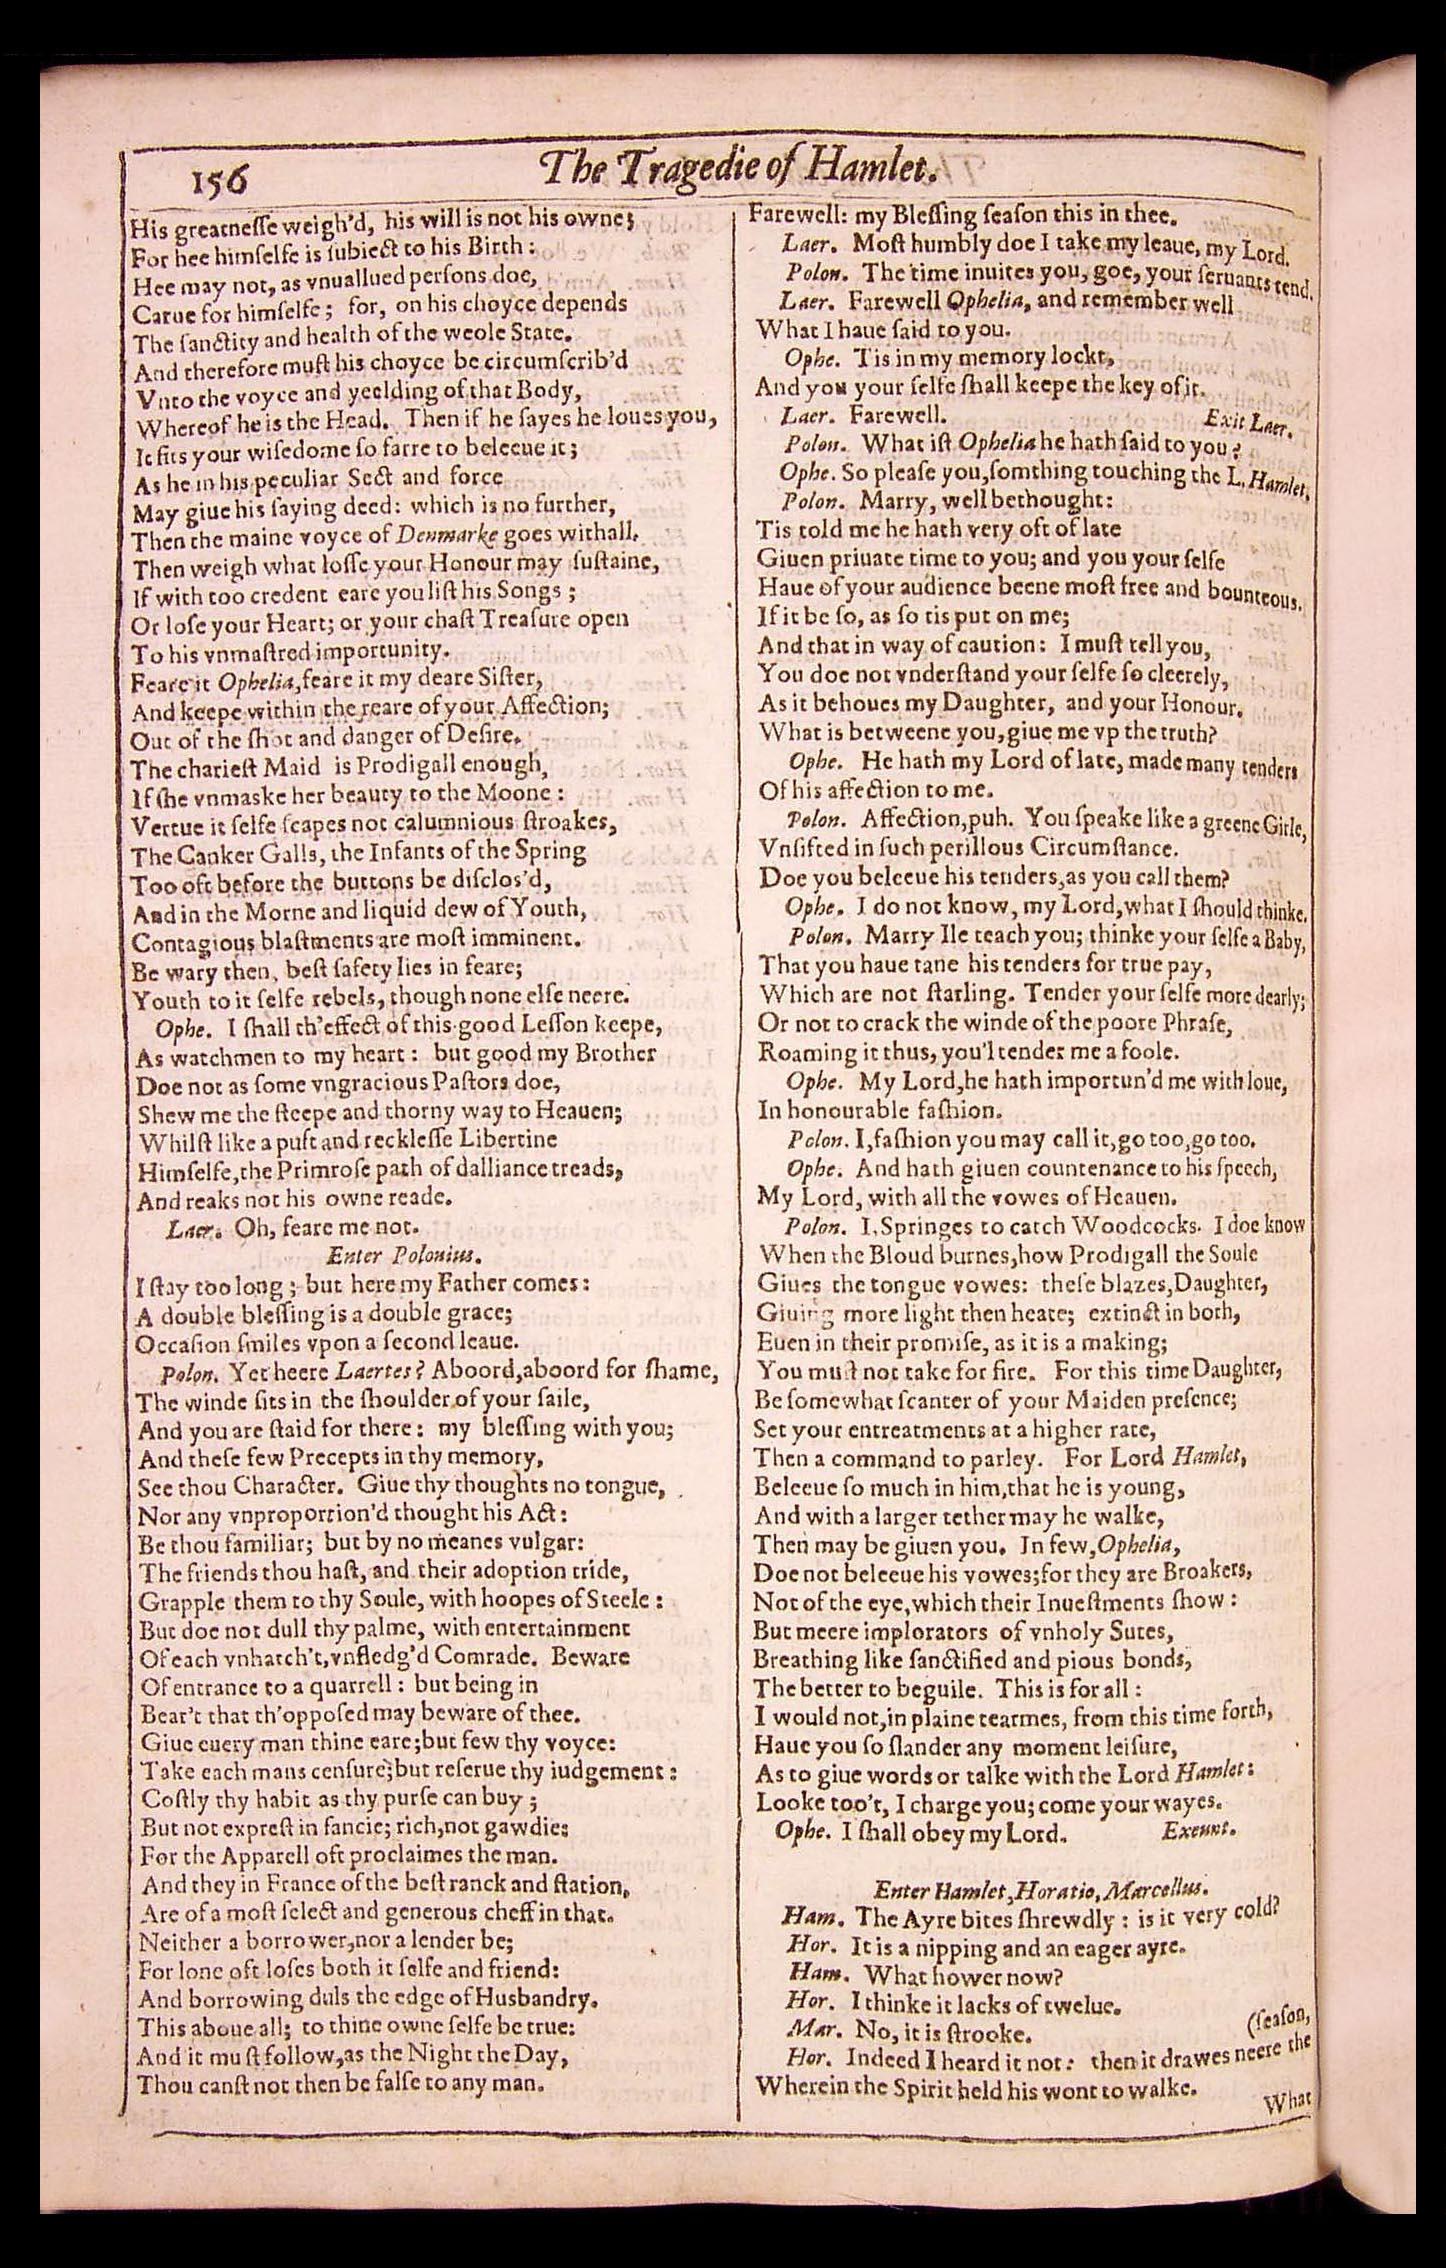 156
The Tragedie of Hamlet.
His greatneſſe weigh'd, his will is not his owne;
For hee himſelfe is ſubiect to his Birth:
Hee may not, as vnuallued perſons doe,
Carue for himſelfe; for, on his choyce depends
The ſanctity and health of the weole State.
And therefore muſt his choyce be circumſcrib'd
Vnto the voyce and yeelding of that Body,
Whereof he is the Head. Then if he ſayes he loues you,
It fits your wiſedome ſo farre to beleeue it;
As he in his peculiar Sect and force
May giue his ſaying deed: which is no further,
Then the maine voyce of Denmarke goes withall.
Then weigh what loſſe your Honour may ſuſtaine,
If with too credent eare you liſt his Songs;
Or loſe your Heart; or your chaſt Treaſure open
To his vnmaſtred importunity.
Feare it Ophelia, feare it my deare Siſter,
And keepe within the reare of your Affection;
Out of the ſhot and danger of Deſire.
The charieſt Maid is Prodigall enough,
If ſhe vnmaske her beauty to the Moone:
Vertue it ſelfe ſcapes not calumnious ſtroakes,
The Canker Galls, the Infants of the Spring
Too oft before the buttons be diſclos'd,
And in the Morne and liquid dew of Youth,
Contagious blaſtments are moſt imminent.
Be wary then, beſt ſafety lies in feare;
Youth to it ſelfe rebels, though none elſe neere.
Ophe. I ſhall th'effect of this good Leſſon keepe,
As watchmen to my heart: but good my Brother
Doe not as ſome vngracious Paſtors doe,
Shew me the ſteepe and thorny way to Heauen;
Whilſt like a puft and reckleſſe Libertine
Himſelfe, the Primroſe path of dalliance treads,
And reaks not his owne reade.
Laer. Oh, feare me not.
Enter Polonius.
I ſtay too long; but here my Father comes:
A double bleſſing is a double grace;
Occaſion ſmiles vpon a ſecond leaue.
Polon. Yet heere Laertes? Aboord, aboord for ſhame,
The winde ſits in the ſhoulder of your ſaile,
And you are ſtaid for there: my bleſſing with you;
And theſe few Precepts in thy memory,
See thou Character. Giue thy thoughts no tongue,
Nor any vnproportion'd thought his Act:
Be thou familiar; but by no meanes vulgar:
The friends thou haſt, and their adoption tride,
Grapple them to thy Soule, with hoopes of Steele:
But doe not dull thy palme, with entertainment
Of each vnhatch't, vnfledg'd Comrade. Beware
Of entrance to a quarrell: but being in
Bear't that th'oppoſed may beware of thee.
Giue euery man thine eare; but few thy voyce:
Take each mans cenſure; but reſerue thy iudgement:
Coſtly thy habit as thy purſe can buy;
But not expreſt in fancie; rich, not gawdie:
For the Apparell oft proclaimes the man.
And they in France of the beſt ranck and ſtation,
Are of a moſt ſelect and generous cheff in that.
Neither a borrower, nor a lender be;
For lone oft loſes both it ſelfe and friend:
And borrowing duls the edge of Husbandry.
This aboue all; to thine owne ſelfe be true:
And it muſt follow, as the Night the Day,
Thou canſt not then be falſe to any man.
Farewell: my Bleſſing ſeaſon this in thee.
Laer. Moſt humbly doe I take my leaue, my Lord.
Polon. The time inuites you, goe, your ſeruants tend.
Laer. Farewell Ophelia, and remember well
What I haue ſaid to you.
Ophe. Tis in my memory lockt,
And you your ſelfe ſhall keepe the key of it.
Laer. Farewell. Exit Laer.
Polon. What iſt Ophelia he hath ſaid to you?
Ophe. So pleaſe you, ſomthing touching the L. Hamlet.
Polon. Marry, well bethought:
Tis told me he hath very oft of late
Giuen priuate time to you; and you your ſelfe
Haue of your audience beene moſt free and bounteous.
If it be ſo, as ſo tis put on me;
And that in way of caution: I muſt tell you,
You doe not vnderſtand your ſelfe ſo cleerely,
As it behoues my Daughter, and your Honour.
What is betweene you, giue me vp the truth?
Ophe. He hath my Lord of late, made many tenders
Of his affection to me.
Polon. Affection, puh. You ſpeake like a greene Girle,
Vnſifted in ſuch perillous Circumſtance.
Doe you beleeue his tenders, as you call them?
Ophe. I do not know, my Lord, what I ſhould thinke.
Polon. Marry Ile teach you; thinke your ſelfe a Baby,
That you haue tane his tenders for true pay,
Which are not ſtarling. Tender your ſelfe more dearly;
Or not to crack the winde of the poore Phraſe,
Roaming it thus, you'l tender me a foole.
Ophe. My Lord, he hath importun'd me with loue,
In honourable faſhion.
Polon. I, faſhion you may call it, go too, go too.
Ophe. And hath giuen countenance to his ſpeech,
My Lord, with all the vowes of Heauen.
Polon. I, Springes to catch Woodcocks. I doe know
When the Bloud burnes, how Prodigall the Soule
Giues the tongue vowes: theſe blazes, Daughter,
Giuing more light then heate; extinct in both,
Euen in their promiſe, as it is a making;
You muſt not take for fire. For this time Daughter,
Be ſomewhat ſcanter of your Maiden preſence;
Set your entreatments at a higher rate,
Then a command to parley. For Lord Hamlet,
Beleeue ſo much in him, that he is young,
And with a larger tether may he walke,
Then may be giuen you. In few, Ophelia,
Doe not beleeue his vowes; for they are Broakers,
Not of the eye, which their Inueſtments ſhow:
But meere implorators of vnholy Sutes,
Breathing like ſanctified and pious bonds,
The better to beguile. This is for all:
I would not, in plaine tearmes, from this time forth,
Haue you ſo ſlander any moment leiſure,
As to giue words or talke with the Lord Hamlet:
Looke too't, I charge you; come your wayes.
Ophe. I ſhall obey my Lord. Exeunt.
Enter Hamlet, Horatio, Marcellus.
Ham. The Ayre bites ſhrewdly: is it very cold?
Hor. It is a nipping and an eager ayre.
Ham. What hower now?
Hor. I thinke it lacks of twelue.
Mar. No, it is ſtrooke. (ſeaſon,
Hor. Indeed I heard it not: then it drawes neere the
Wherein the Spirit held his wont to walke.
What